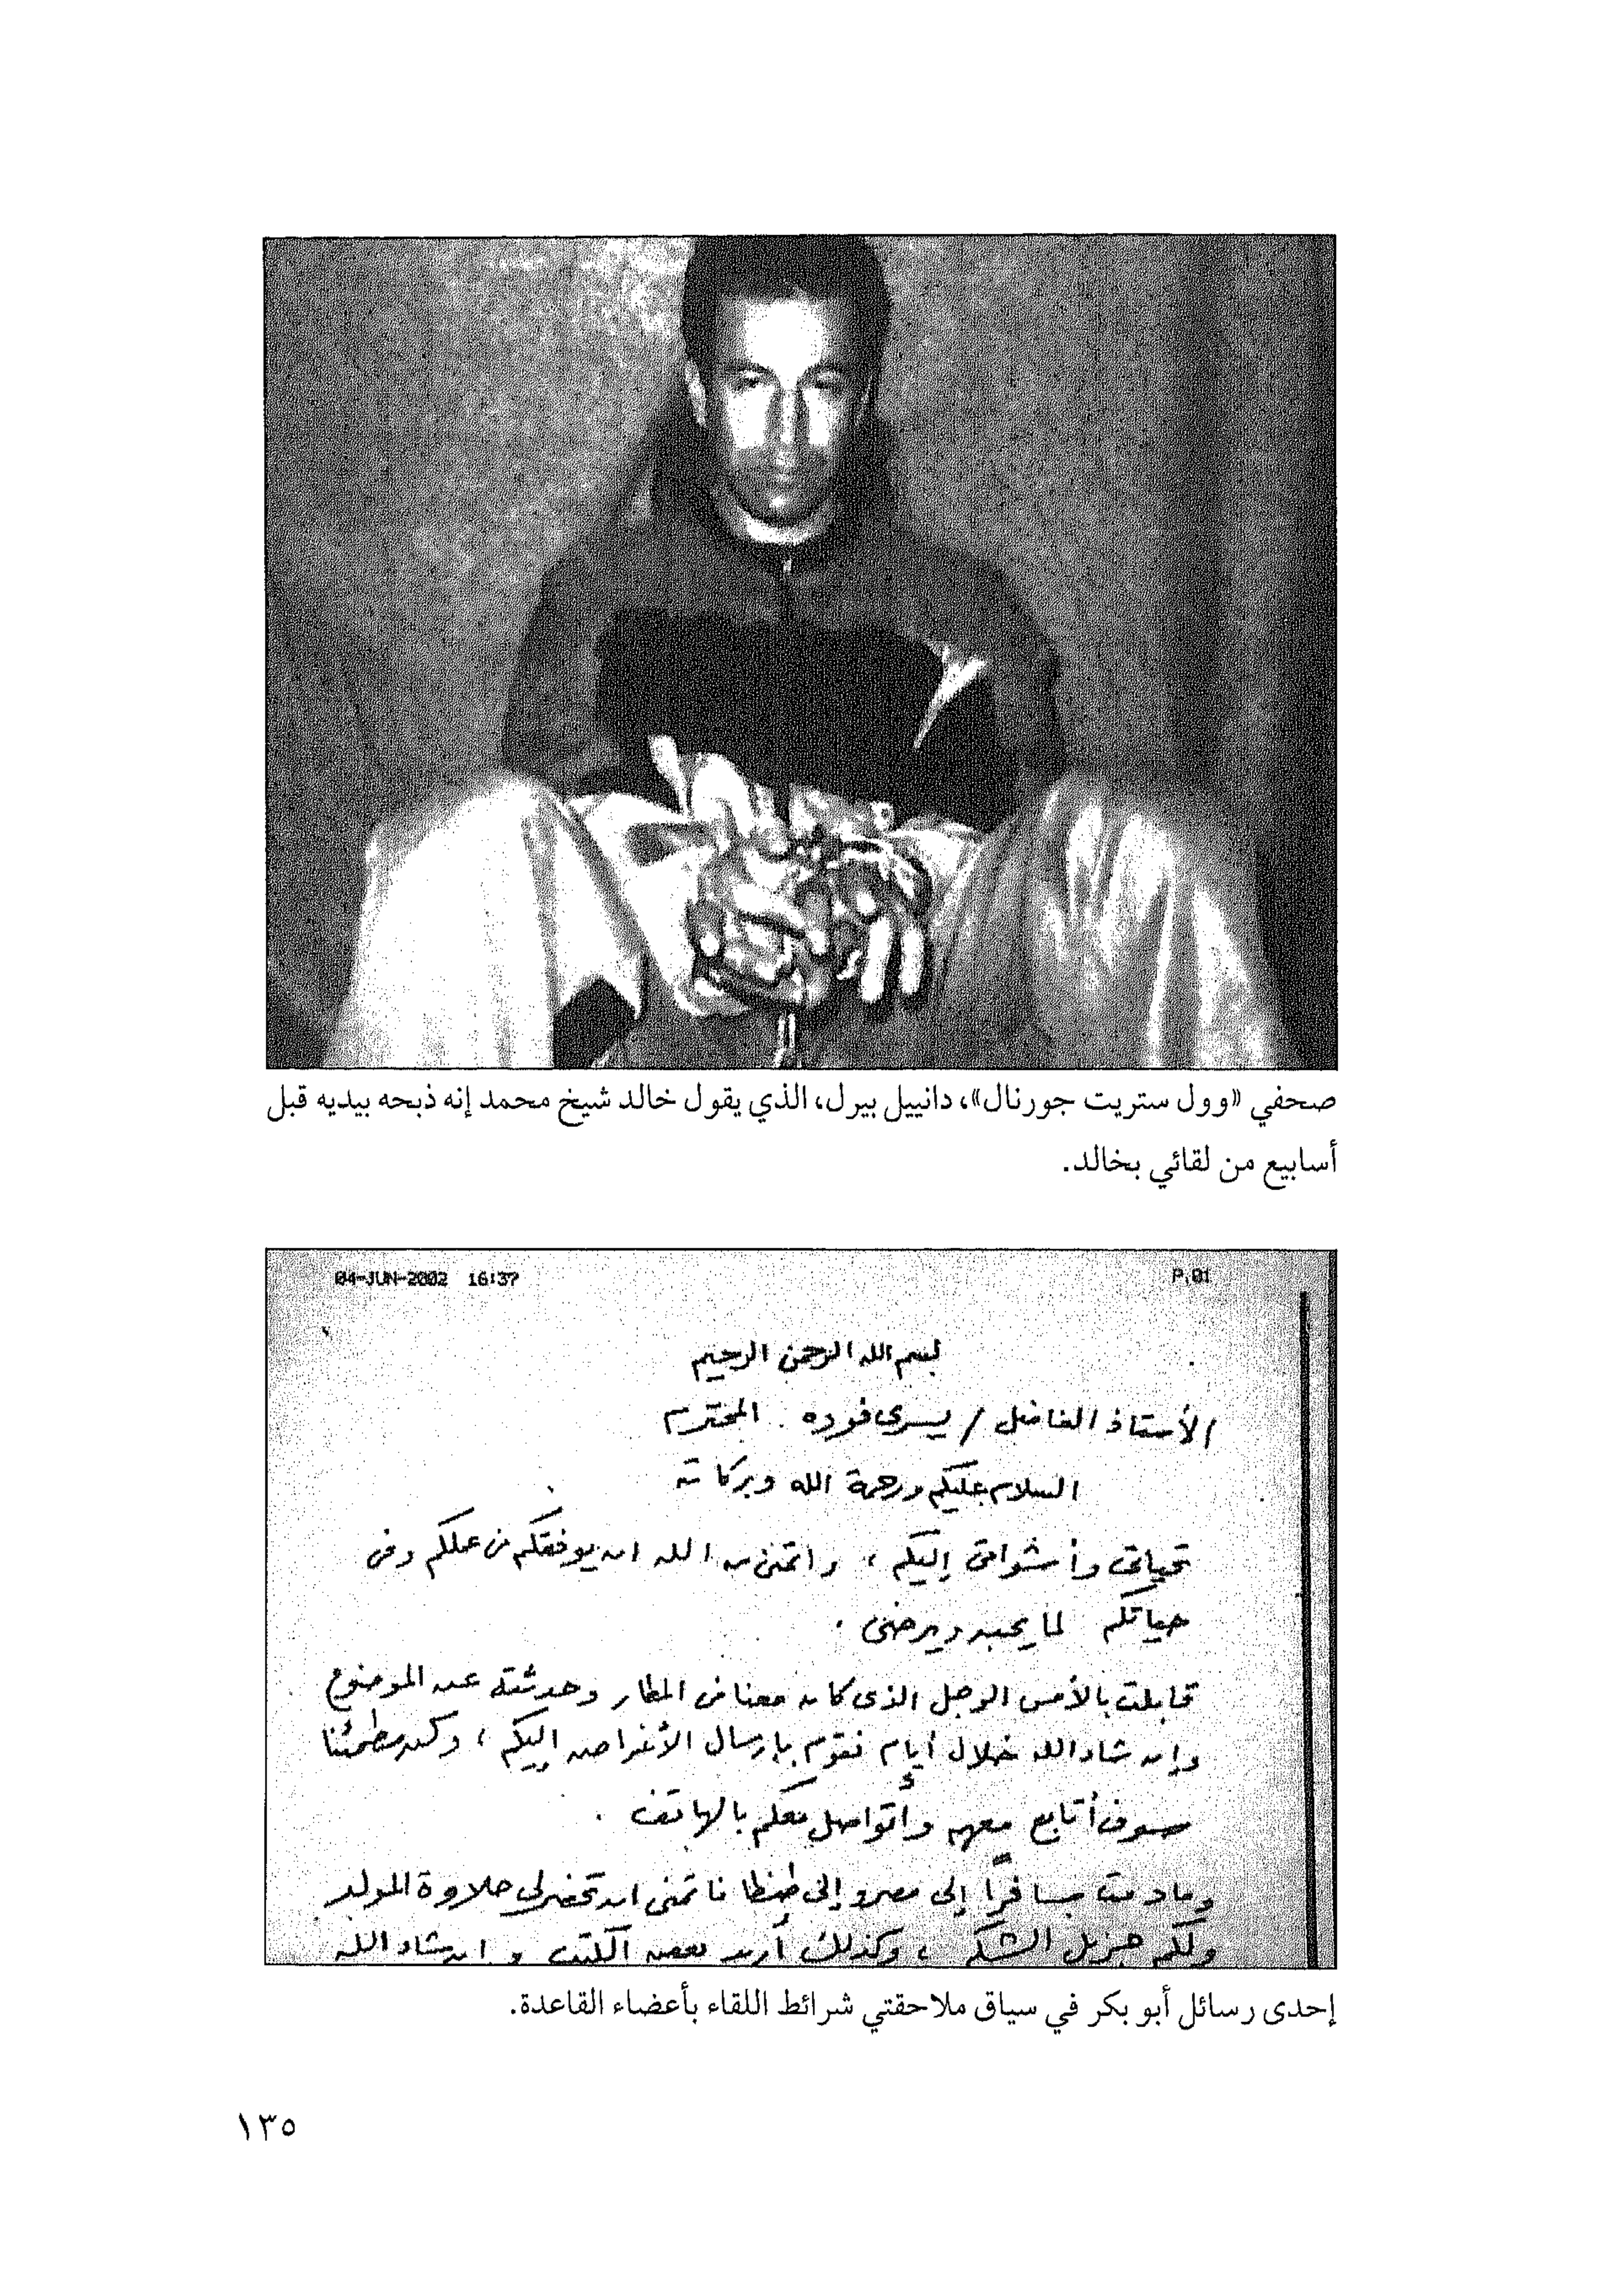 صحفي «وول ستريت جورنال»، دانييل بيرل، الذي يقول خالد شيخ محمد إنه ذبحه بيديه قبل
أسابيع من لقائي بخالد.
04-JUN-2002 16:37 P.01
بسم الله الرحمن الرحيم
الأستاذ الفاضل / يسرى فوده المحترم
السلام عليكم ورحمة الله وبركاته
تحياتى وأشواقى إليكم ، واتمنى من الله ان يوفقكم فى عملكم وفى
حياتكم لما يحبه ويرضى .
قابلت بالأمس الرجل الذى كان معنا فى المطار وحدثته عن الموضوع
وإن شاء الله خلال أيام نقوم بإرسال الأقراص إليكم ، وكن مطمئنا
سوف أتابع معهم وأتواصل معكم بالهاتف .
ومادمت مسافرا إلى مصر وإلى طنطا فاتمنى ان تحضر لى حلاوة المولد
ولكم جزيل الشكر ، وكذلك أريد بعض الكتب و ان شاء الله
إحدى رسائل أبو بكر في سياق ملاحقتي شرائط اللقاء بأعضاء القاعدة.
١٣٥